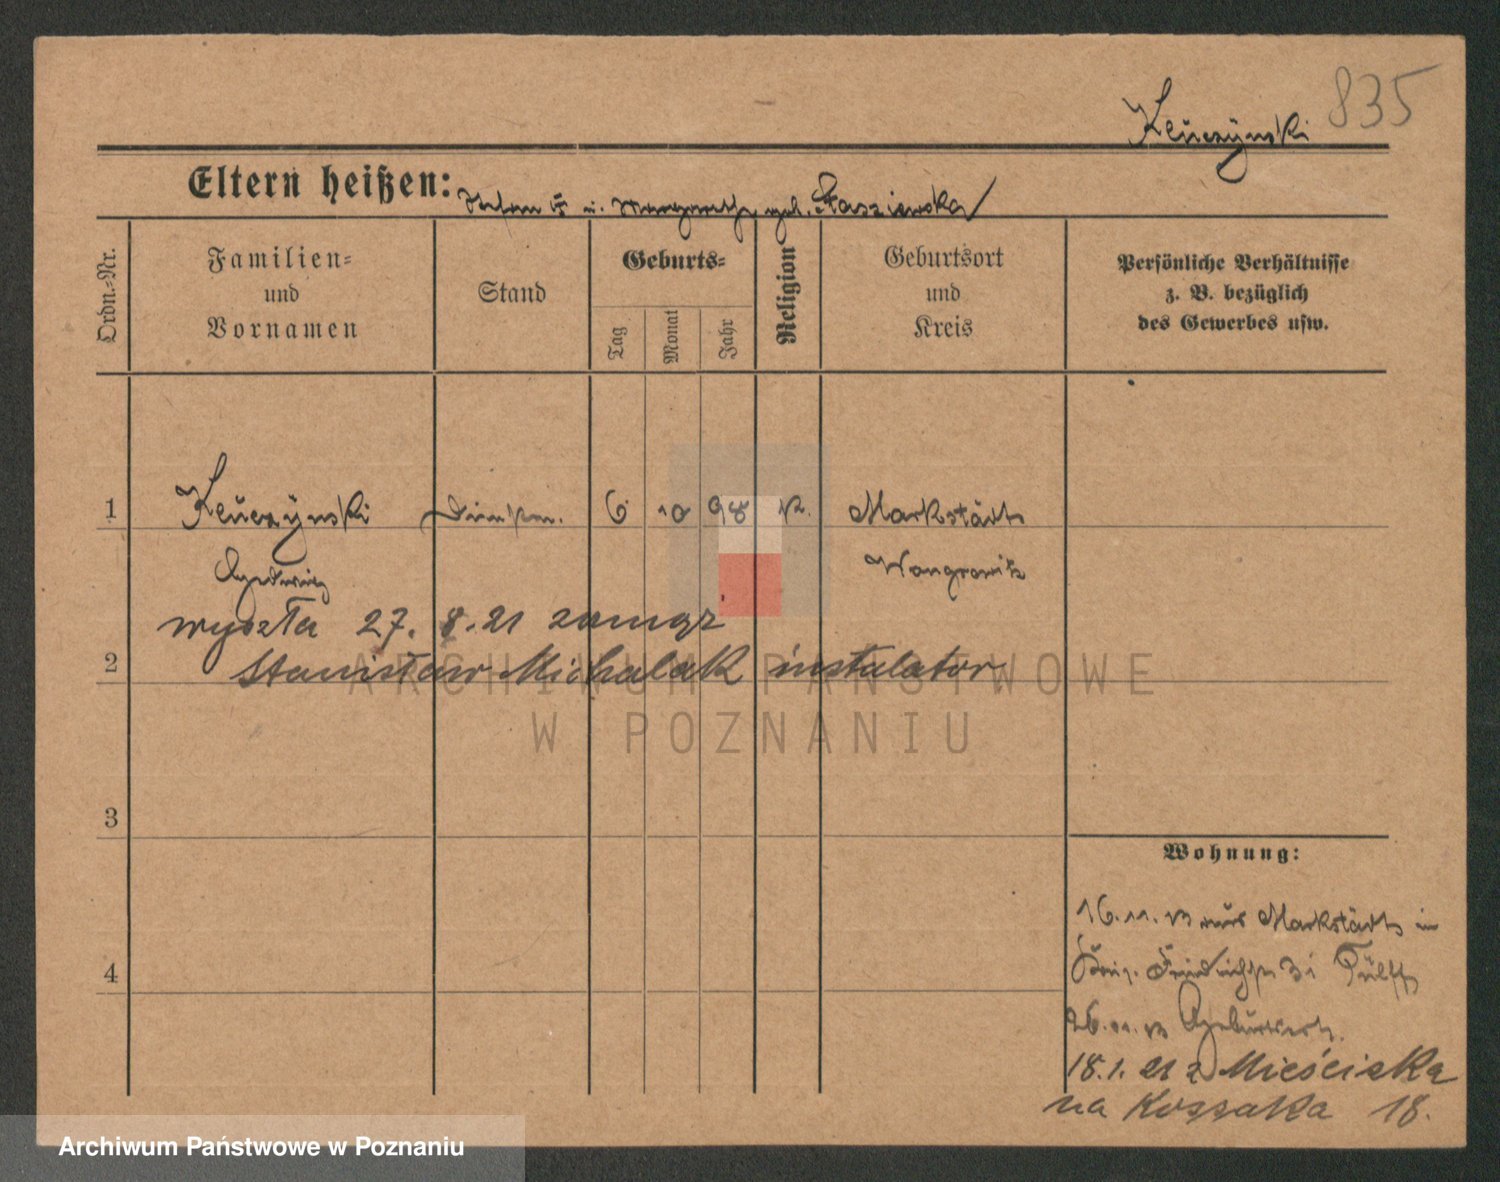 835
Kluczynski
Eltern heißen: Stefan u. Margarethe geb. Staszewska
Ordn.-Nr.
Familien-
und
Vornamen
Stand
Geburts-
Tag
Monat
Jahr
Religion
Geburtsort
und
Kreis
Persönliche Verhältnisse
z. B. bezüglich
des Gewerbes usw.
1
Kluczynski
6 10 98 K.
Markstädt
Hedwig
Wongrowitz
wyszła 27. 8. 21 zamąż
2
Stanisław Michalak instalator
ARCHIWUM PAŃSTWOWE
W POZNANIU
3
Wohnung:
16. 11. 13 aus Markstädt in
31
4
26. 11. 13
18. 1. 21 z Mieściska
na Kossaka 18.
Archiwum Państwowe w Poznaniu